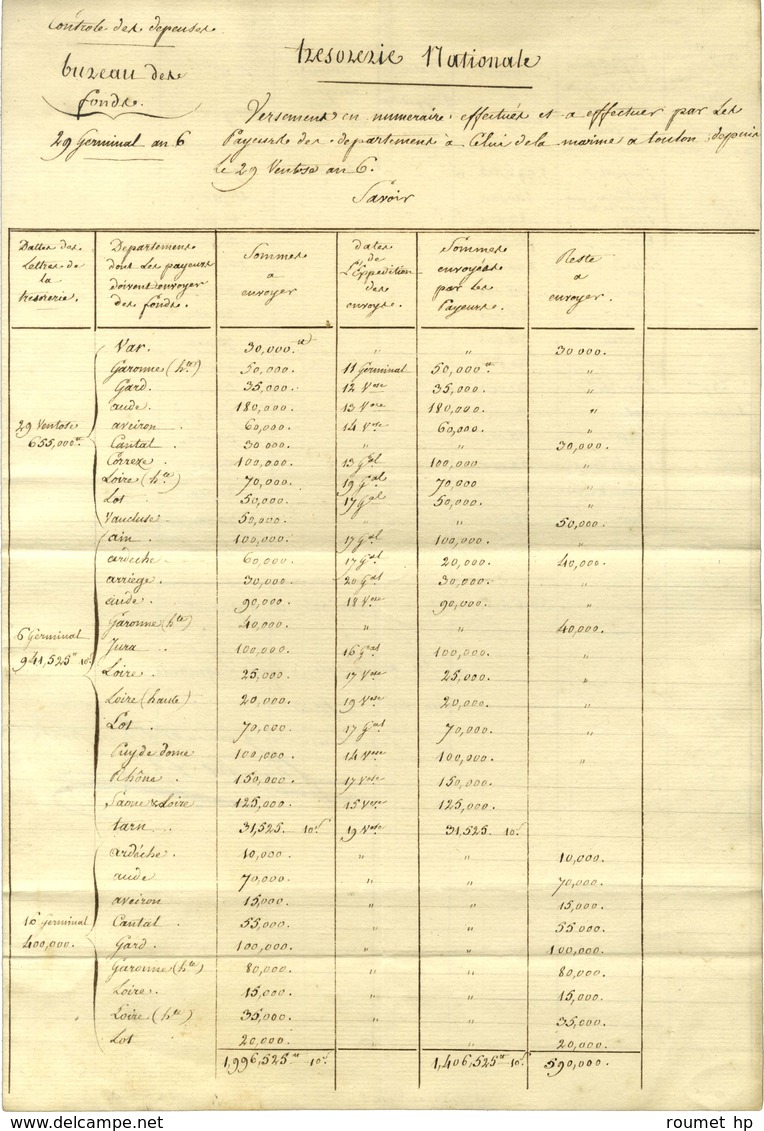 Contrôle des depenses
bureau des
fonds.
29 Germinal an 6
tresorerie Nationale
Versemens en numeraire effectués et a effectuer par les
Payeurs des departemens à Celui de la marine a toulon depuis
le 29 Ventose an 6.
Savoir
Dattes des Lettres de la tresorerie. | Departemens dont les payeurs doivent envoyer des fonds. | Sommes a envoyer | dates de L'Expedition des envoys. | Sommes envoyées par les Payeurs. | Reste a envoyer.
29 Ventose
655,000.tt
Var. 30,000.tt " " 30000.
Garonne (hte) 50,000. 11 Germinal 50,000tt "
Gard. 35,000. 12 Vose 35,000. "
aude. 180,000. 13 Vose 180,000. "
aveiron 60,000. 14 Vose 60,000. "
Cantal 30000. " " 30,000.
Correze. 100,000. 13 Gal 100,000 "
Loire (hte) 70,000. 19 Gal 70,000 "
Lot 50,000. 17 Gal 50,000. "
Vaucluse. 50,000. " " 50,000.
6 Germinal
941,525tt 10s
ain 100,000. 17 Gal 100,000. "
ardeche 60,000. 17 Gal 20,000. 40,000.
arriège. 30,000. 20 Gal 30,000. "
aude. 90,000. 18 Vose 90,000. "
Garonne (hte) 40,000. " " 40,000.
Jura 100,000. 16 Gal 100,000. "
Loire. 25,000. 17 Vose 25,000. "
Loire (haute) 20,000. 19 Vose 20,000. "
Lot. 70,000. 17 Gal 70,000. "
Puy de dome 100,000. 14 Vose 100,000. "
Rhône. 150,000. 17 Vose 150,000.
Saone & Loire 125,000. 15 Vose 125,000.
tarn 31,525. 10s 19 Vose 31,525. 10s
10 Germinal
400,000.
ardéche. 10,000. " " 10,000.
aude 70,000. " " 70,000.
aveiron 15,000. " " 15,000.
Cantal 55,000. " " 55,000.
Gard. 100,000. " " 100,000.
Garonne (hte) 80,000. " " 80,000.
Loire. 15,000. " " 15,000.
Loire (hte) 35,000. " " 35,000.
Lot 20,000. " " 20,000.
1,996,525tt 10s 1,406,525tt 10s 590,000.
roumet hp